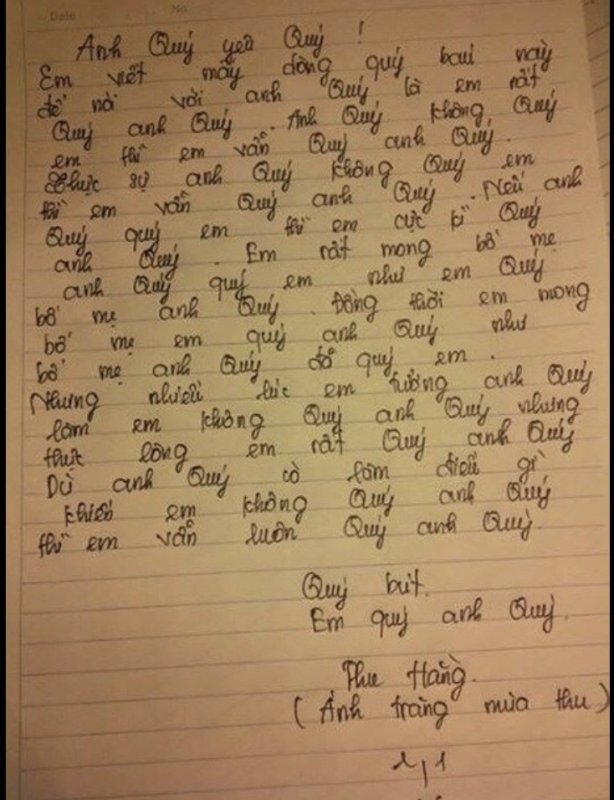 Date No.
Anh Quý yêu Quý !
Em viết mấy dòng quý báu này
để nói với anh Quý là em rất
Quý anh Quý. Anh Quý không Quý
em thì em vẫn Quý anh Quý.
Thực sự anh Quý không Quý em
thì em vẫn Quý anh Quý. Nếu anh
Quý quý em thì em cực kì Quý
anh Quý. Em rất mong bố mẹ
anh Quý quý em như em Quý
bố mẹ anh Quý. Đồng thời em mong
bố mẹ em quý anh Quý như
bố mẹ anh Quý đã quý em.
Nhưng nhiều lúc em tưởng anh Quý
làm em không Quý anh Quý nhưng
thực lòng em rất Quý anh Quý
Dù anh Quý có làm điều gì
khiến em không Quý anh Quý
thì em vẫn luôn Quý anh Quý.
Quý bút.
Em quý anh Quý.
Thu Hằng.
( Ánh trăng mùa thu )